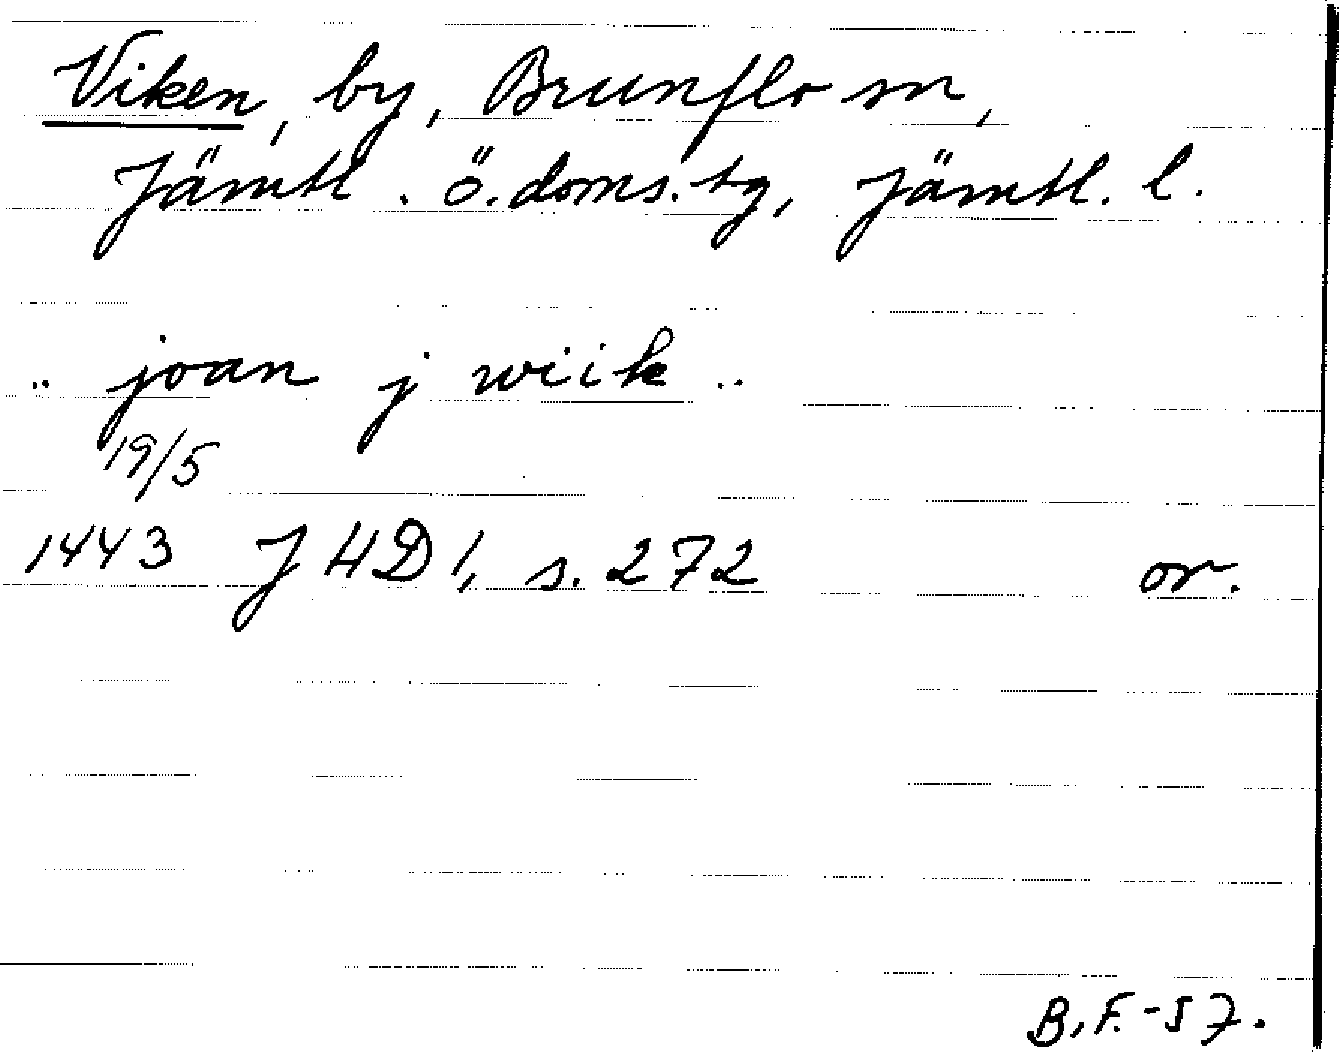 Viken, by, Brunflo sn,
Jämtl. ö. doms. tg, Jämtl. l.
.. joan j wiik ..
19/5
1443 J H D 1, s. 272 or.
B.F.-57.